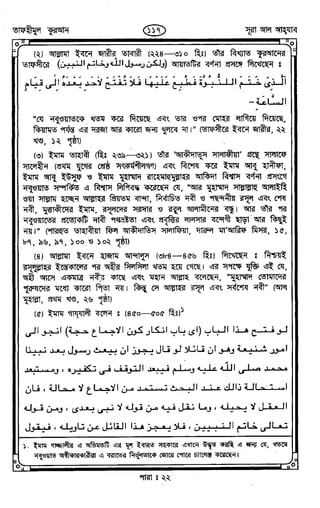 তাফহীমুল কুরআন
১১৭
সূরা আল আহযাব
(২) আল্লামা ইবনে জারীর তাবারী (২২৪–৩১০ হিঃ) তাঁর বিখ্যাত কুরআনের
তাফসীরে (ولكن رسول الله وخاتم النبين) আয়াতটির বর্ণনা প্রসঙ্গে লিখেছেন ঃ
الذى ختم النبوة فطبع عليها فلا تفتح لاحد بعده الى قيام
الساعة -
"যে নবুওয়াতকে খতম করে দিয়েছে এবং তার ওপর মোহর লাগিয়ে দিয়েছে,
কিয়ামত পর্যন্ত এর দরজা আর কারো জন্য খুলবে না।" (তাফসীরে ইবনে জারীর, ২২
খণ্ড, ১২ পৃষ্ঠা)
(৩) ইমাম তাহাবী (হিঃ ২৩৯–৩২১) তাঁর 'আকীদাতুস সালাফীয়া' গ্রন্থে সালাফে
সালেহীন (প্রথম যুগের শ্রেষ্ঠ সৎকর্মশীলগণ) এবং বিশেষ করে ইমাম আবু হানীফা,
ইমাম আবু ইউসুফ ও ইমাম মুহাম্মাদ রাহেমাহুমুল্লাহর আকিদা বিশ্বাস বর্ণনা প্রসংগে
নবুওয়াত সম্পর্কিত এ বিশ্বাস লিপিবদ্ধ করেছেন যে, "আর মুহাম্মাদ সাল্লাল্লাহু আলাইহি
ওয়া সাল্লাম হচ্ছেন আল্লাহর প্রিয়তম বান্দা, নির্বাচিত নবী ও পছন্দনীয় রসূল এবং শেষ
নবী, মুত্তাকীদের ইমাম, রসূলদের সরদার ও রব্বুল আলামীনের বন্ধু। আর তাঁর পর
নবুওয়াতের প্রত্যেকটি দাবী পথভ্রষ্টতা এবং প্রবৃত্তির লালসার বন্দেগী ছাড়া আর কিছুই
নয়।" (শারহুত তাহাবীয়া ফিল আকীদাতিস সালাফিয়া, দারুল মা'আরিফ মিসর, ১৫,
৮৭, ৯৬, ৯৭, ১০০ ও ১০২ পৃষ্ঠা)
(৪) আল্লামা ইবনে হাজাম আন্দালুসি (৩৮৪–৪৫৬ হিঃ) লিখেছেন ঃ নিশ্চয়ই
রসূলুল্লাহর ইন্তেকালের পর অহীর সিলসিলা খতম হয়ে গেছে। এর সপক্ষে যুক্তি এই যে,
অহী আসে একমাত্র নবীর কাছে এবং মহান আল্লাহ বলেছেন, "মুহাম্মাদ তোমাদের
পুরুষদের মধ্যে কারো পিতা নয়। কিন্তু সে আল্লাহর রসূল এবং সর্বশেষ নবী" (আল
মুহাল্লা, প্রথম খণ্ড, ২৬ পৃষ্ঠা)
(৫) ইমাম গাযযালী বলেন ঃ (৪৫০–৫০৫ হিঃ)১
لو فتح هذا الباب (اى باب انكار كون الاجماع حجة) انجر الى
امور شنيعة وهو ان قائلا لو قال يجوز ان يبعث رسول بعد نبينا
محمد صلى الله عليه وسلم فيبعد التوقف فى تكفيره ، ومستبعد
استحالة ذالك عند البحث تستمد من الاجماع لا محالة ، فان
العقل لا يحيله ، وما نقل فيه من قوله لا نبى بعدى ، ومن قوله
تعالى خاتم النبيين ، فلا يعجز هذا القائل عن تاويله ، فيقول
১. ইমাম গাযযালীর এ অভিমতটি এর মূল ইবারত সহকারে এখানে উদ্ধৃত করছি এ জন্য যে, খতমে
নবুওয়াত অস্বীকারকারীরা এ বরাতের নির্ভুলতাকে জোরে শোরে চ্যালেঞ্জ করেছেন।
পারা ঃ ২২